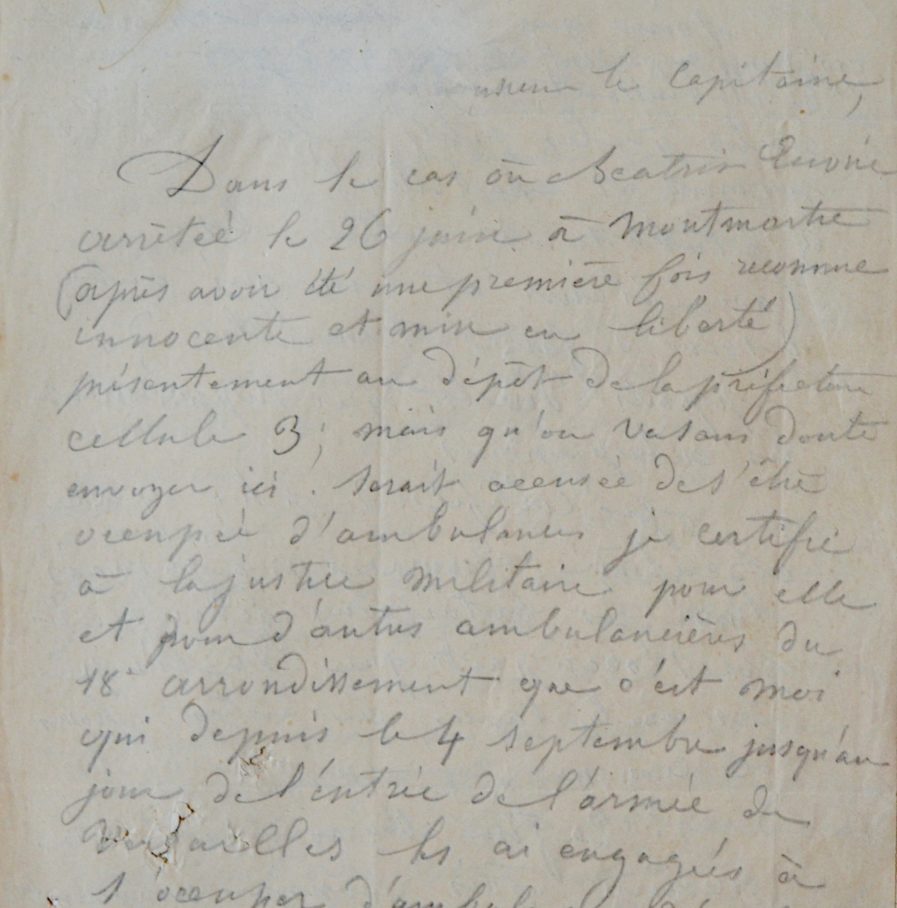 le Capitaine,
Dans le cas où Beatrix Excoffon
arrêtée le 26 juin à Montmartre
(après avoir été une première fois reconnue
innocente et mise en liberté)
présentement au dépôt de la préfecture
cellule 3; mais qu'on va sans doute
envoyer ici. serait accusée de s'être
occupée d'ambulances je certifie
à la justice militaire pour elle
et pour d'autres ambulancières du
18e arrondissement que c'est moi
qui depuis le 4 septembre jusqu'au
jour de l'entrée de l'armée de
Versailles les ai engagées à
s'occuper